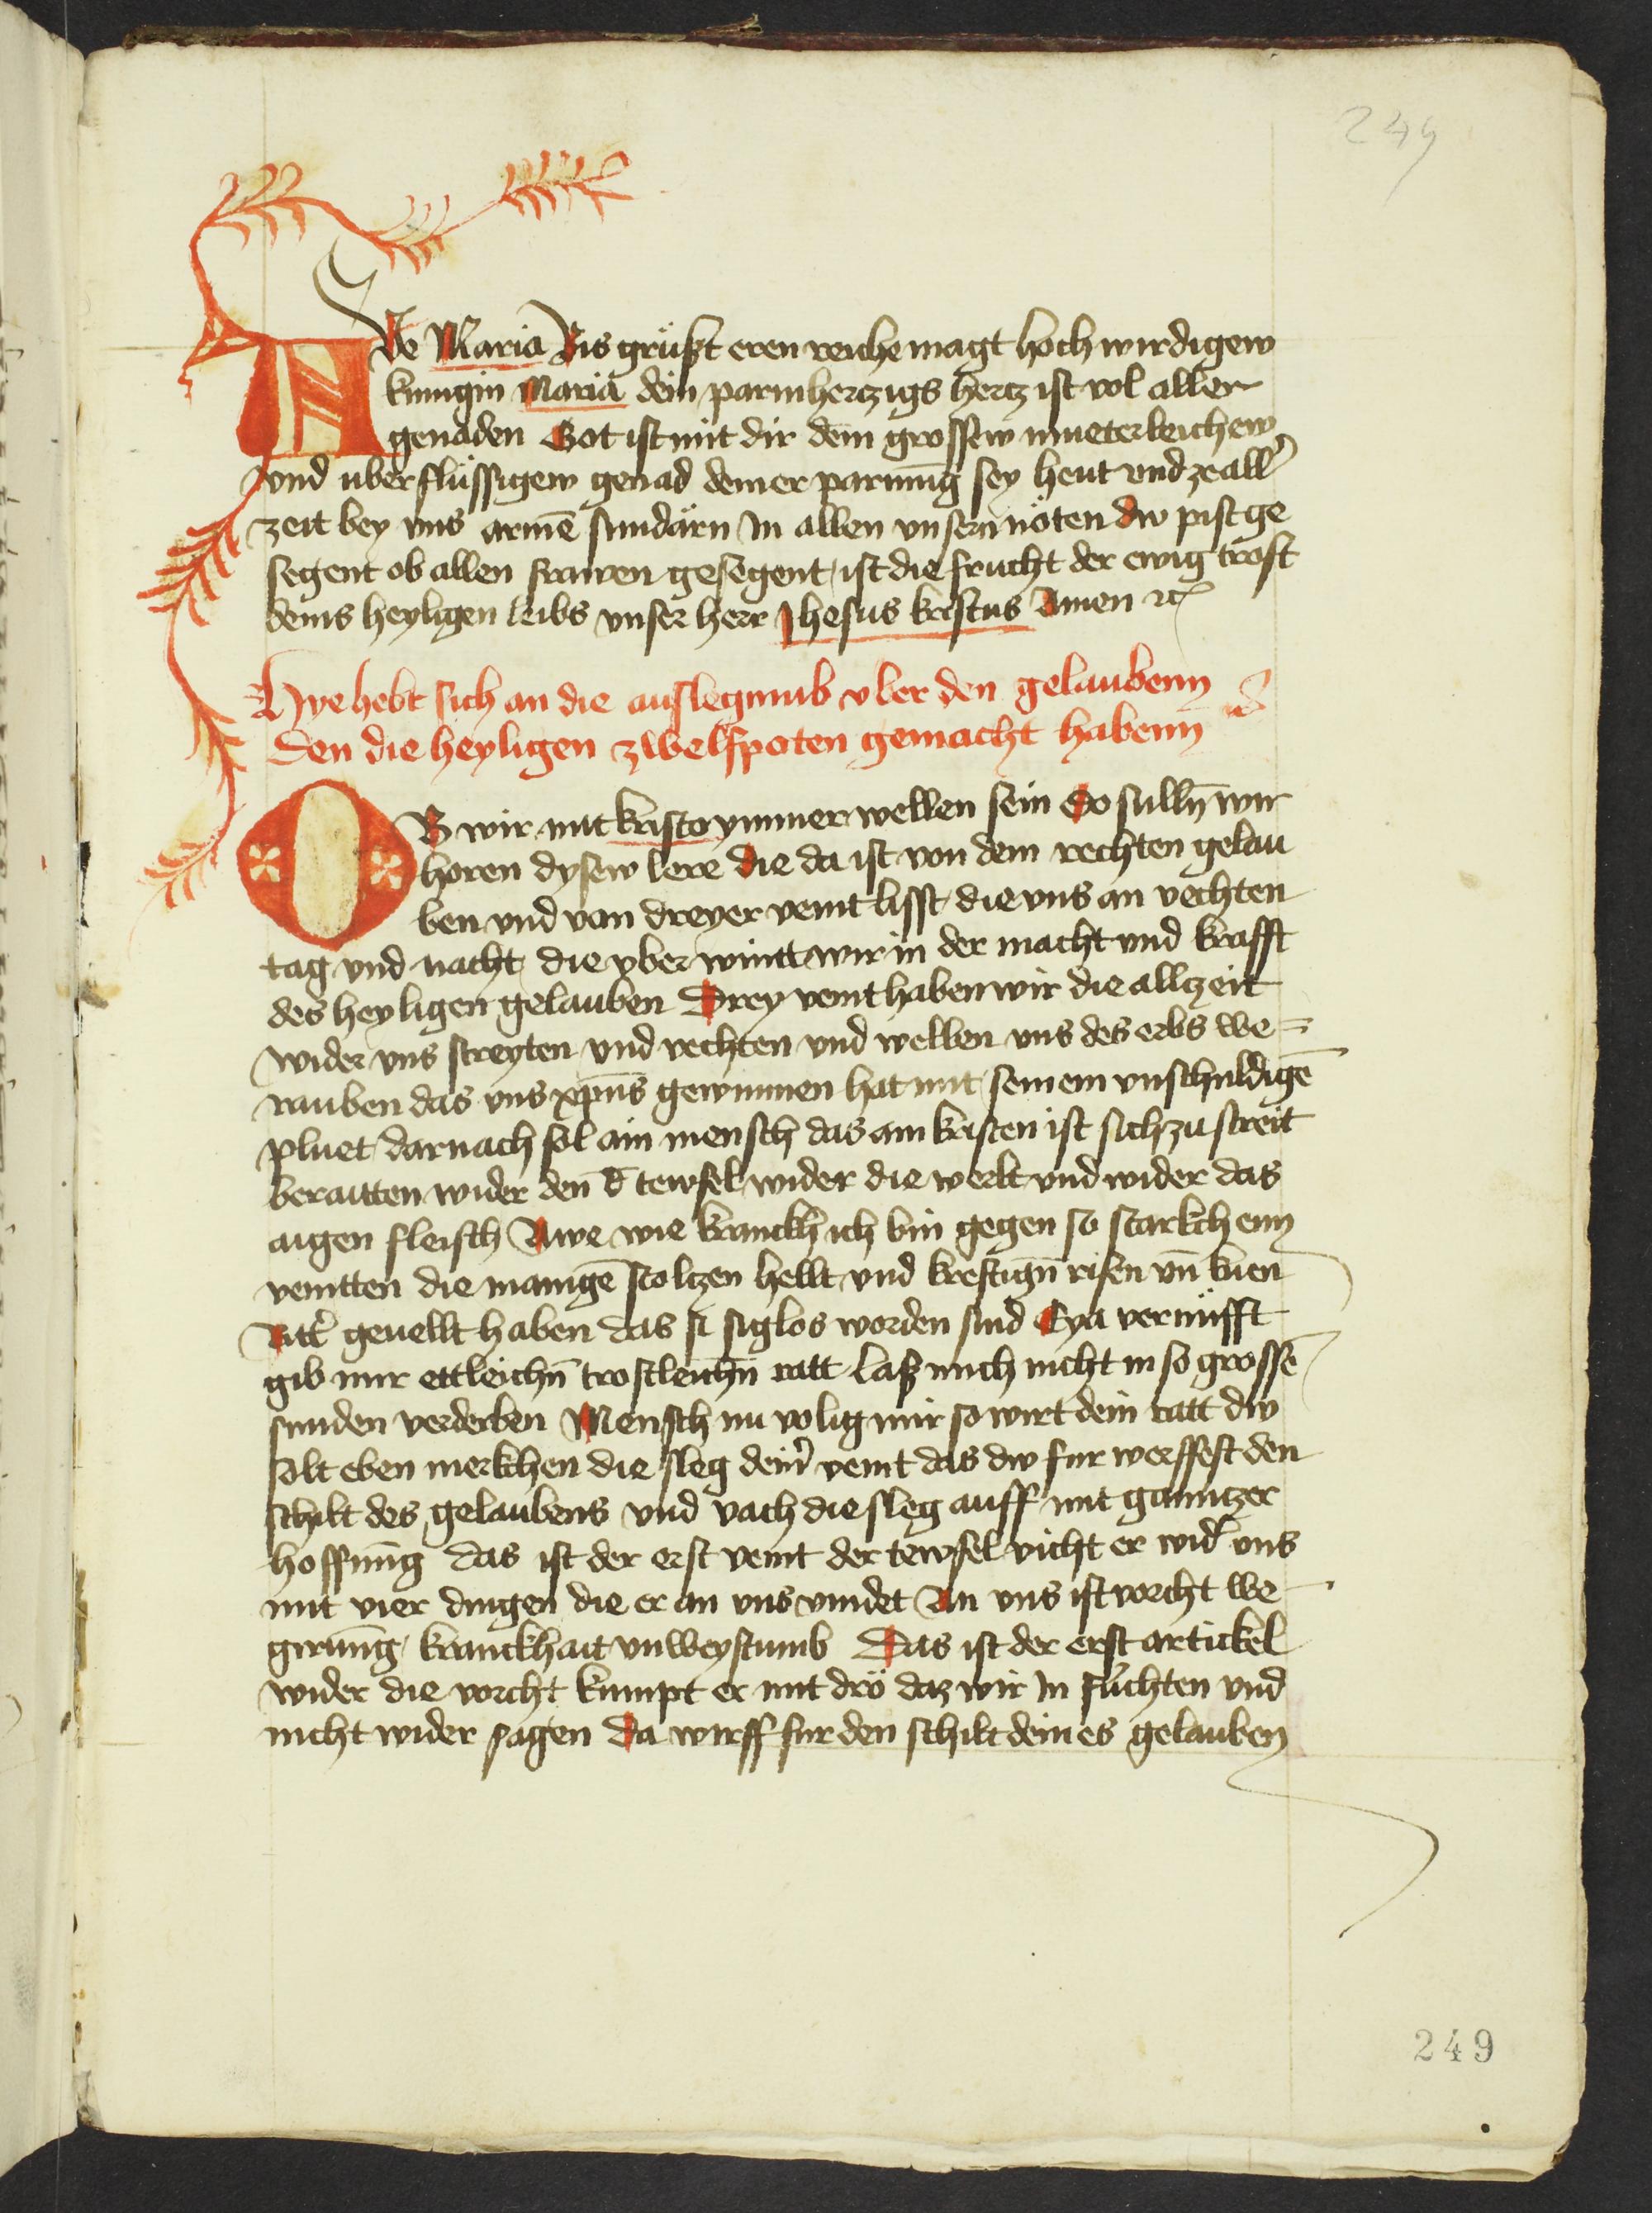 249
AVe Maria Bis grüßt eren reiche magt hoch wirdigew
kunigin Maria dein parmhertzigs hertz ist vol aller
genaden Got ist mit dir dein grossew mueterleichew
vnd uberflüssigew genad deiner parmūg sey heut vnd ze all͛
zeit bey vns armē sundärn In allen vnsern nöten dw pist ge
segent ob allen frawen gesegent ist die frucht der ewig trost
deins heyligen leibs vnser herr Jhesus kristus Amen ꝛc
Hye hebt sich an die auslegnuß vber den gelaubenn
den die heyligen zwelfpoten gemacht habenn
OB wir mit kristo ymmer wellen sein So sulln̄ wir
horen dysew lere die da ist von dem rechten gelau
ben vnd von dreyer veint lisst die vns an vechten
tag vnd nacht die vber wintt wir in der macht vnd krafft
des heyligen gelauben Drey veint haben wir die allzeit
wider vns streyten vnd vechten vnd wellen vns des erbs we=
rauben das vns xp̄us gewunnen hat mit seinem vnschuldigē
pluet darnach sol ain mensch das ain kristen ist sich zu streit
beraitten wider den tewfel wider die werlt vnd wider das
aigen fleisch Awe wie kranckh ich bin gegen so starkchenn
veintten die manigē stoltzen hellt vnd kreftign̄ risen vn̄ kuen
Ritt͛ geuellt haben das si siglos worden sind Eya vernüfft
gib mir ettleichn̄ trostleichn̄ ratt laß mich nicht in so grossē
sunden verderben Mensch nu volig mir so wirt dein ratt dw
solt eben merkchen die sleg dein͛ veint das dw fur werffest den
schilt des gelaubens vnd vach die sleg auff mit ganntzer
hoffnūg das ist der erst veint der tewfel vicht er wid͛ vns
mit vier dingen die er an vns vindet An vns ist vorcht we
girūg kranckhait vnweystumb Das ist der erst artickel
wider die vorcht kumpt er mit drö daz wir In fürchten vnd
nicht wider sagen Da wirff fur den schilt deines gelauben
249